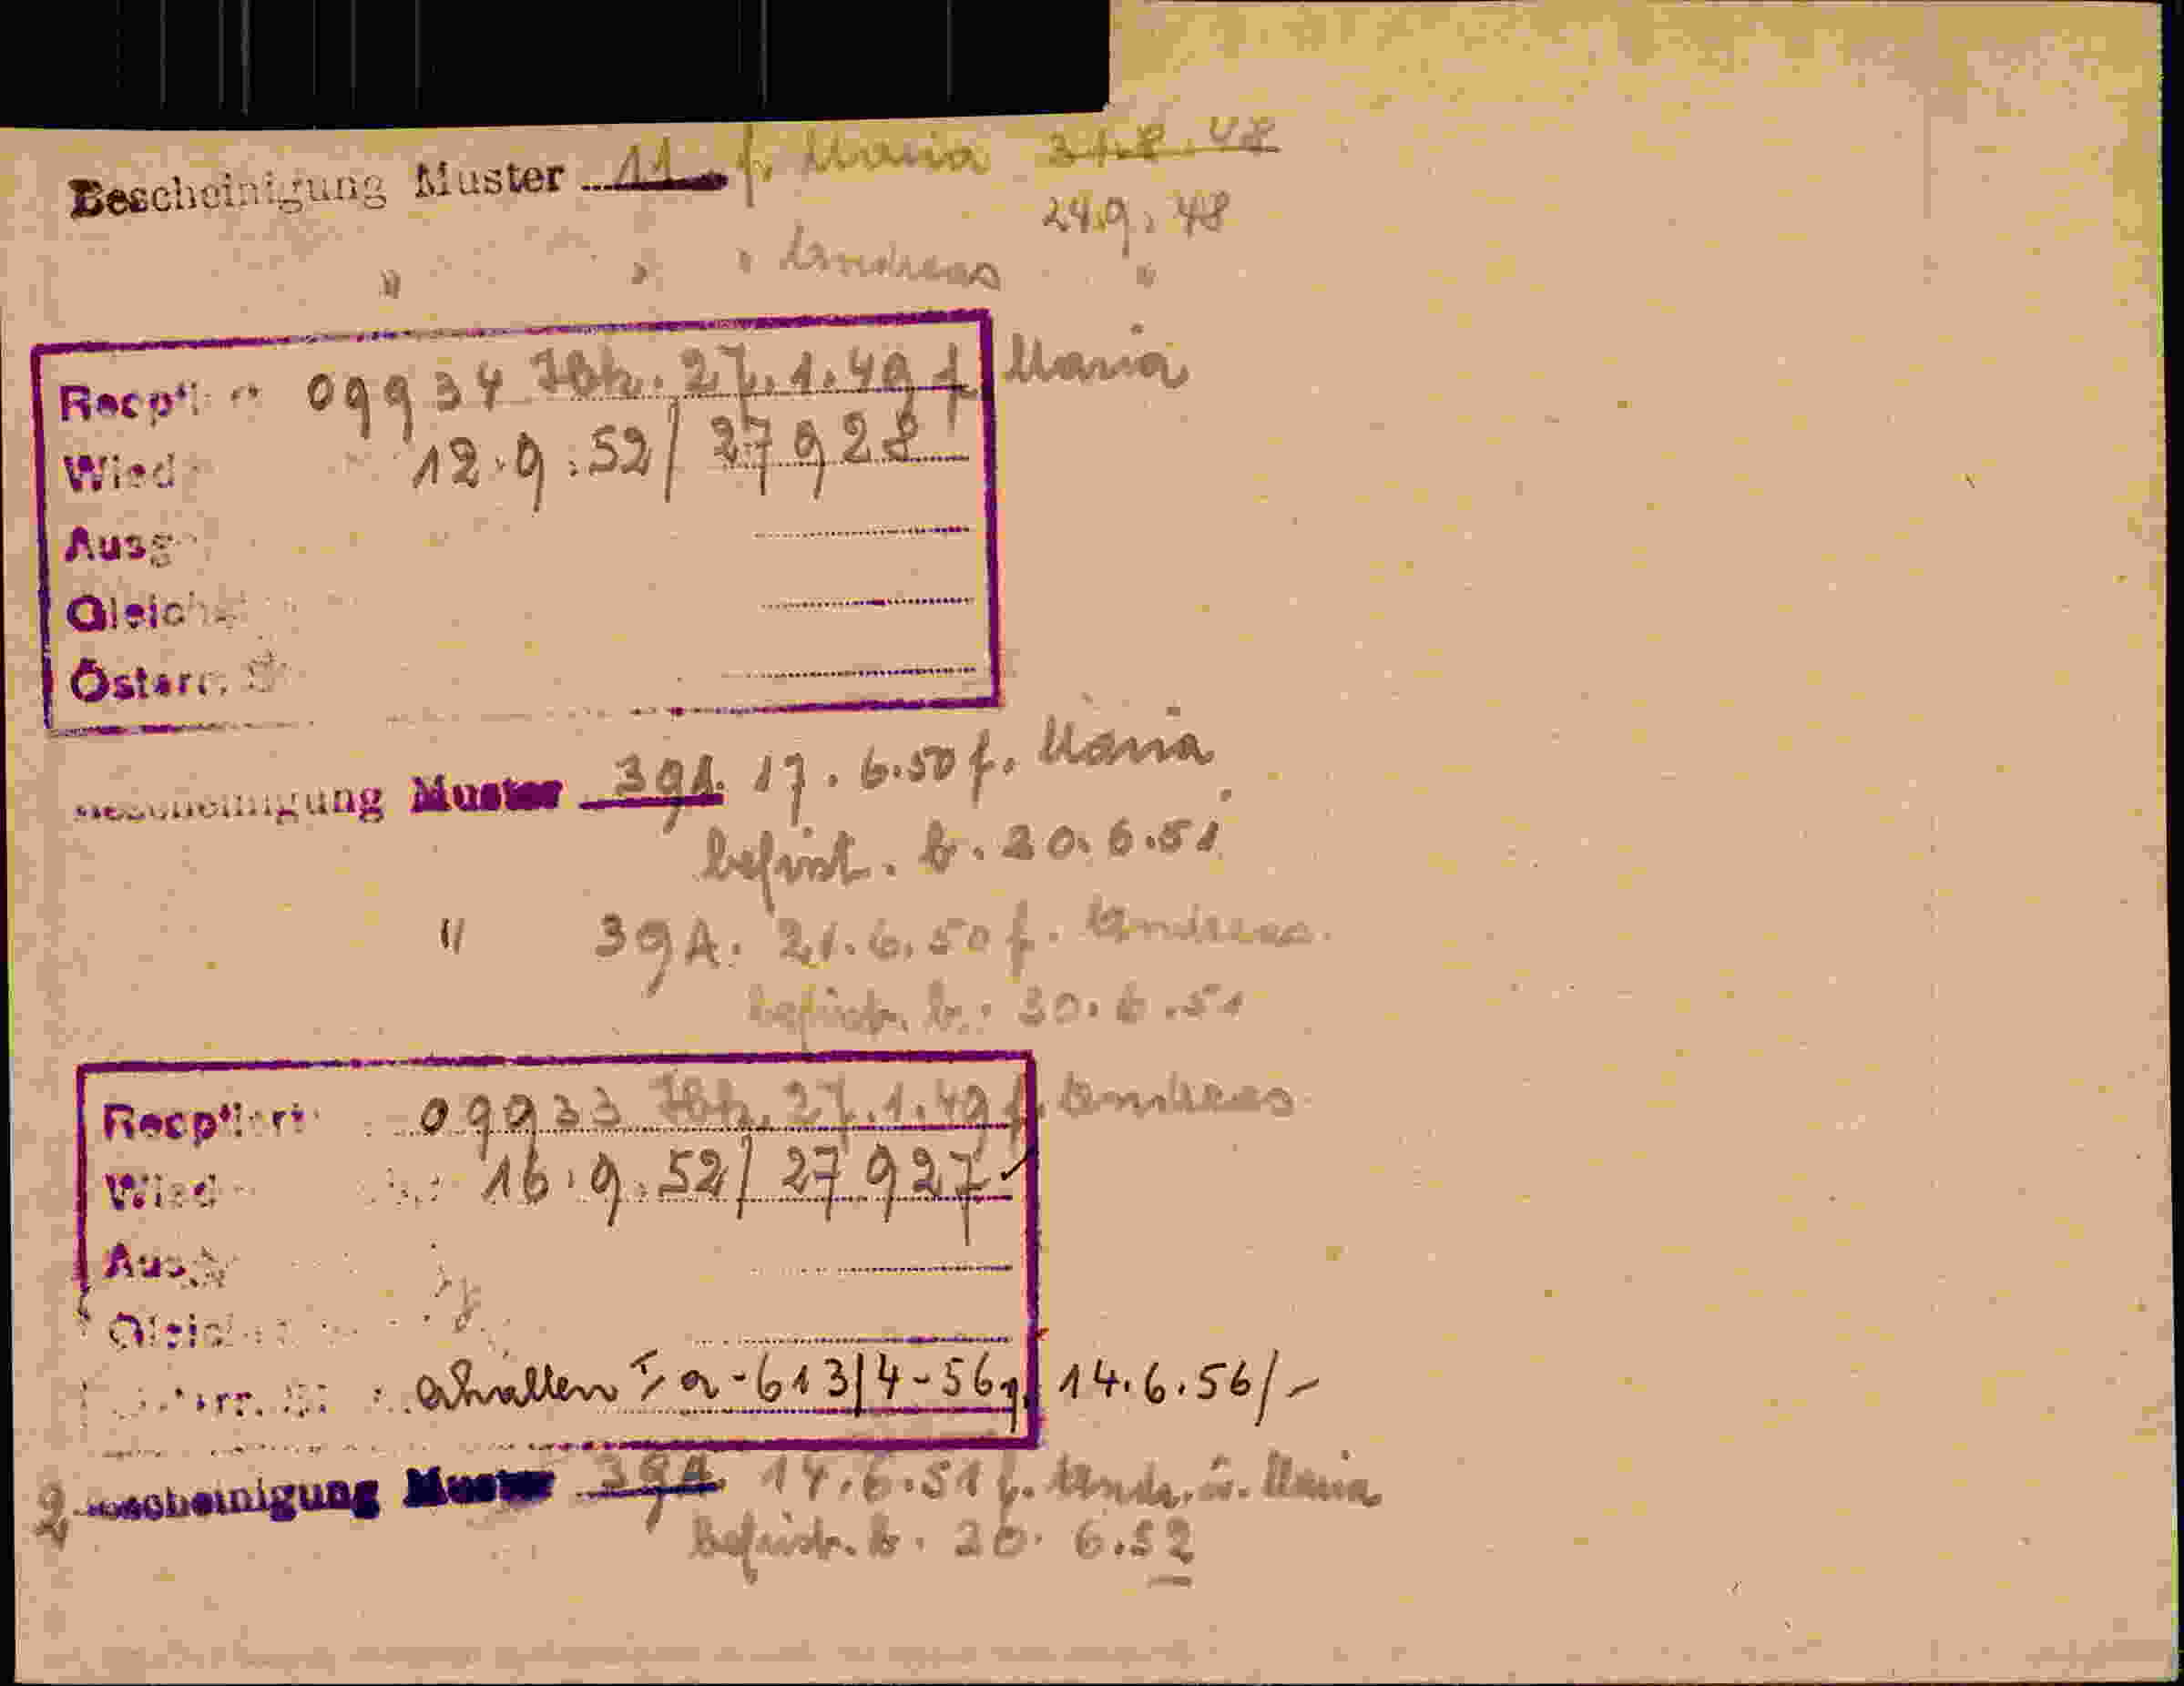 Bescheinigung Muster 11. f. Maria 31.8.48
24.9.48
" " " Andreas "
09934 Jbk. 27.1.49 f. Maria
Wied 12.9.52/27928
Ausg
Gleich
Österr. St
Bescheinigung Muster 39A. 17.6.50 f. Maria
befrist. b. 20.6.51
" 39A. 21.6.50 f. Andreas.
befrist. b. 30.6.51
09933 Jbk. 27.1.49 f. Andreas
Wied 16.9.52/27927
Ausg
Gleich
erhalten I a-613/4-56 14.6.56/-
2. Bescheinigung Muster 39A 14.6.51 f. Andr. u. Maria
befrist. b. 20.6.52